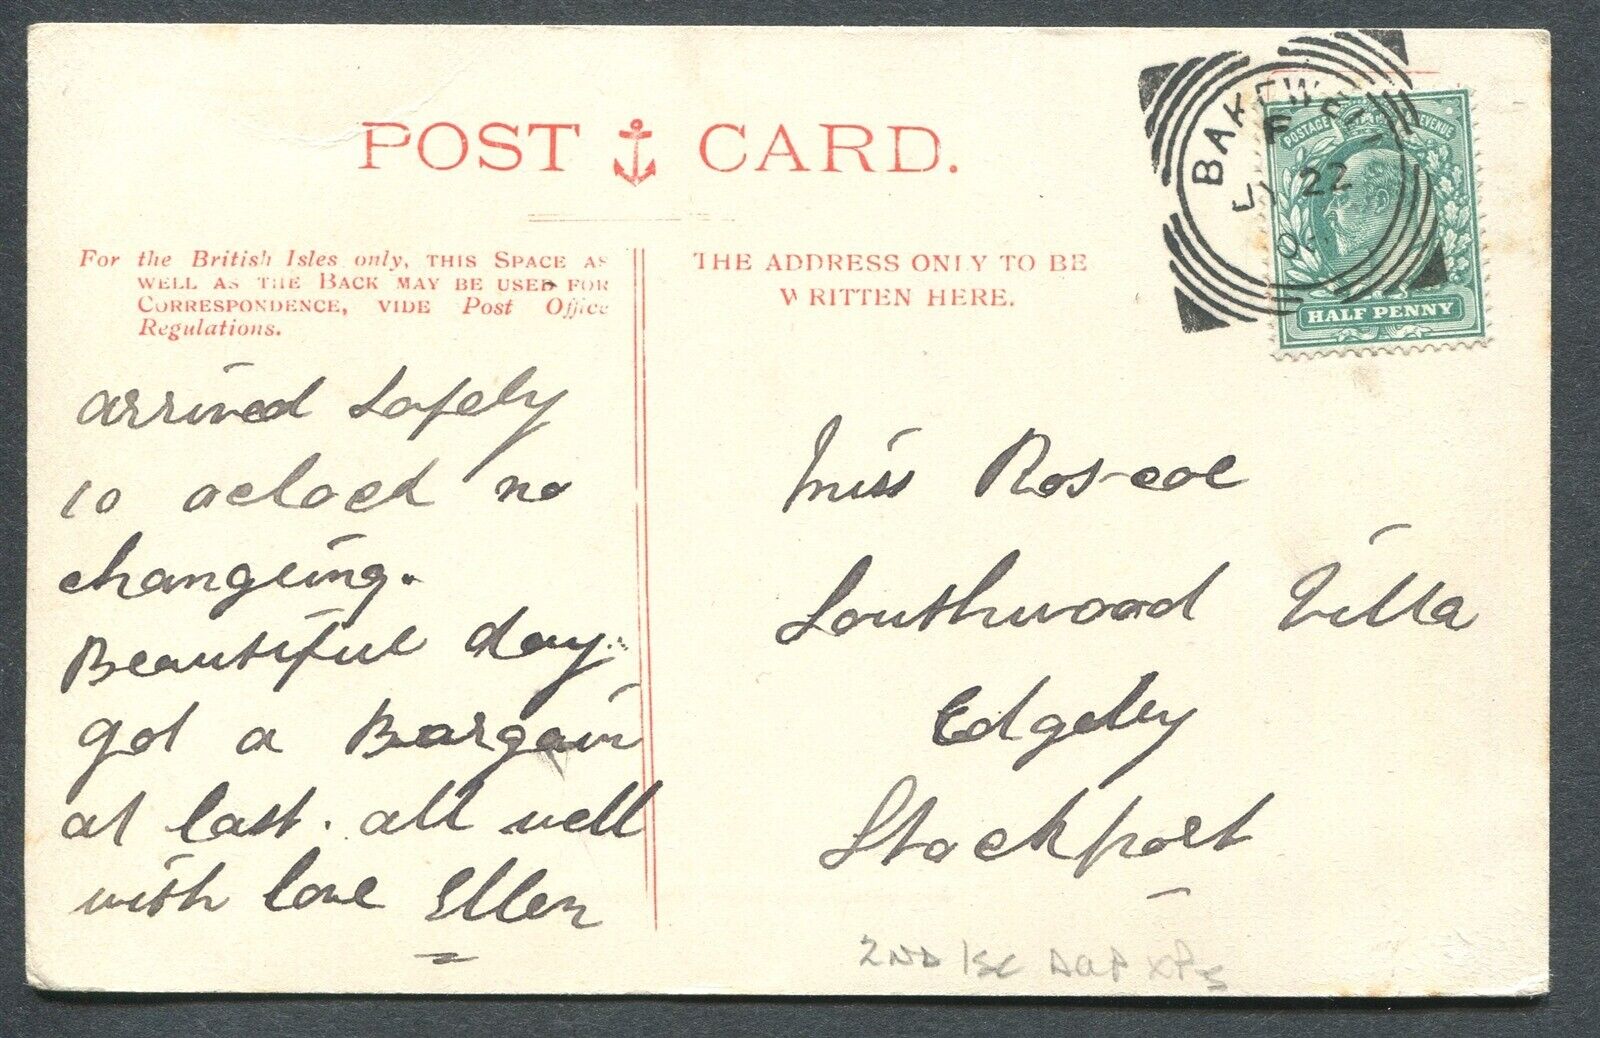 POST CARD.
For the British Isles only, THIS SPACE AS
WELL AS THE BACK MAY BE USED FOR
CORRESPONDENCE, VIDE Post Office
Regulations.
THE ADDRESS ONLY TO BE
WRITTEN HERE.
BAKEWELL
F
22
POSTAGE REVENUE
HALF PENNY
arrived safely
10 aclock no
changeing.
Beautiful day
got a Bargain
at last. all well
with love Ellen
Miss Roscoe
Southwood Villa
Edgeley
Stockport
2ND